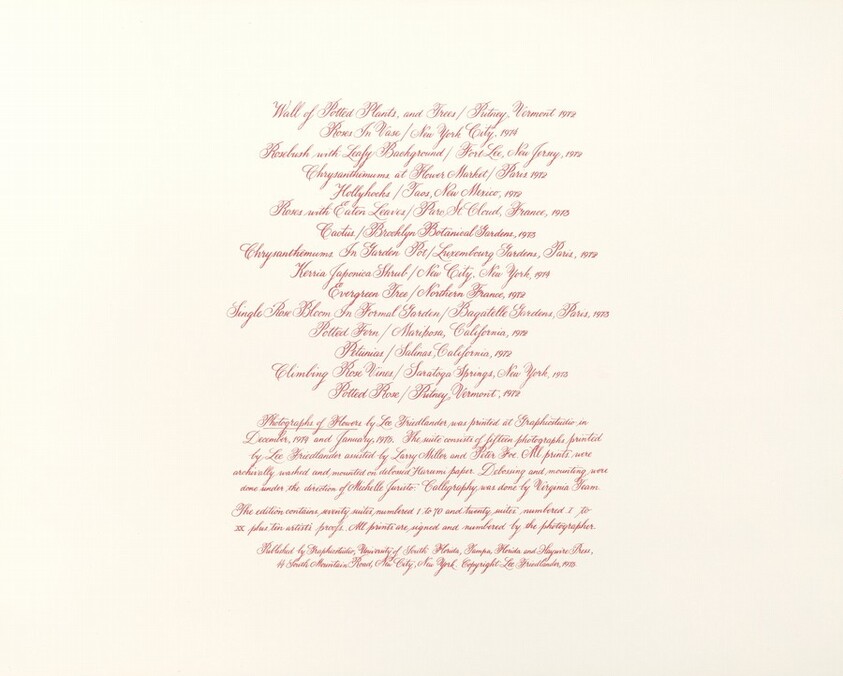 Wall of Potted Plants, and Trees / Putney, Vermont 1972
Roses In Vase / New York City, 1974
Rosebush with Leafy Background / Fort Lee, New Jersey, 1972
Chrysanthimums at Flower Market / Paris 1972
Hollyhocks / Taos, New Mexico, 1972
Roses with Eaten Leaves / Parc St. Cloud, France, 1973
Cactus / Brooklyn Botanical Gardens, 1973
Chrysanthemums In Garden Pot / Luxembourg Gardens, Paris, 1972
Kerria Japonica Shrub / New City, New York, 1974
Evergreen Tree / Northern France, 1972
Single Rose Bloom In Formal Garden / Bagatelle Gardens, Paris, 1973
Potted Fern / Mariposa, California, 1972
Petunias / Salinas, California, 1972
Climbing Rose Vines / Saratoga Springs, New York, 1973
Potted Rose / Putney, Vermont, 1972
Photographs of Flowers by Lee Friedlander, was printed at Graphicstudio in
December, 1974 and January, 1975. The suite consists of fifteen photographs, printed
by Lee Friedlander assisted by Larry Miller and Peter Foe. All prints were
archivally washed and mounted on debossed Harumi paper. Debossing and mounting were
done under the direction of Michelle Juristo. Calligraphy was done by Virginia Team.
The edition contains seventy suites, numbered 1 to 70 and twenty suites, numbered I to
XX plus ten artist's proofs. All prints are signed and numbered by the photographer.
Published by Graphicstudio, University of South Florida, Tampa, Florida and Haywire Press,
44 South Mountain Road, New City, New York. Copyright Lee Friedlander, 1975.